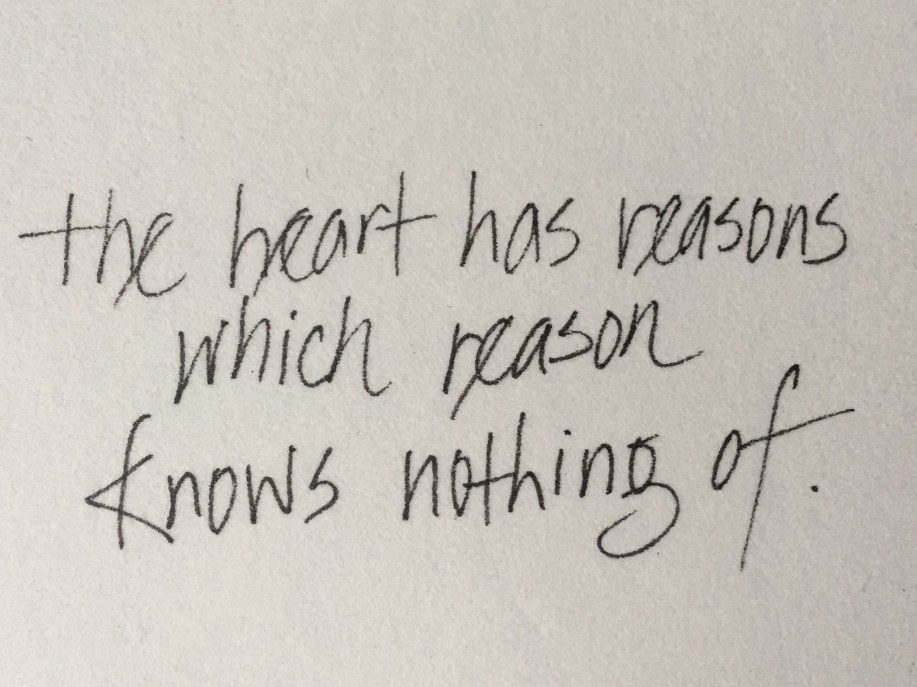 the heart has reasons
which reason
knows nothing of.